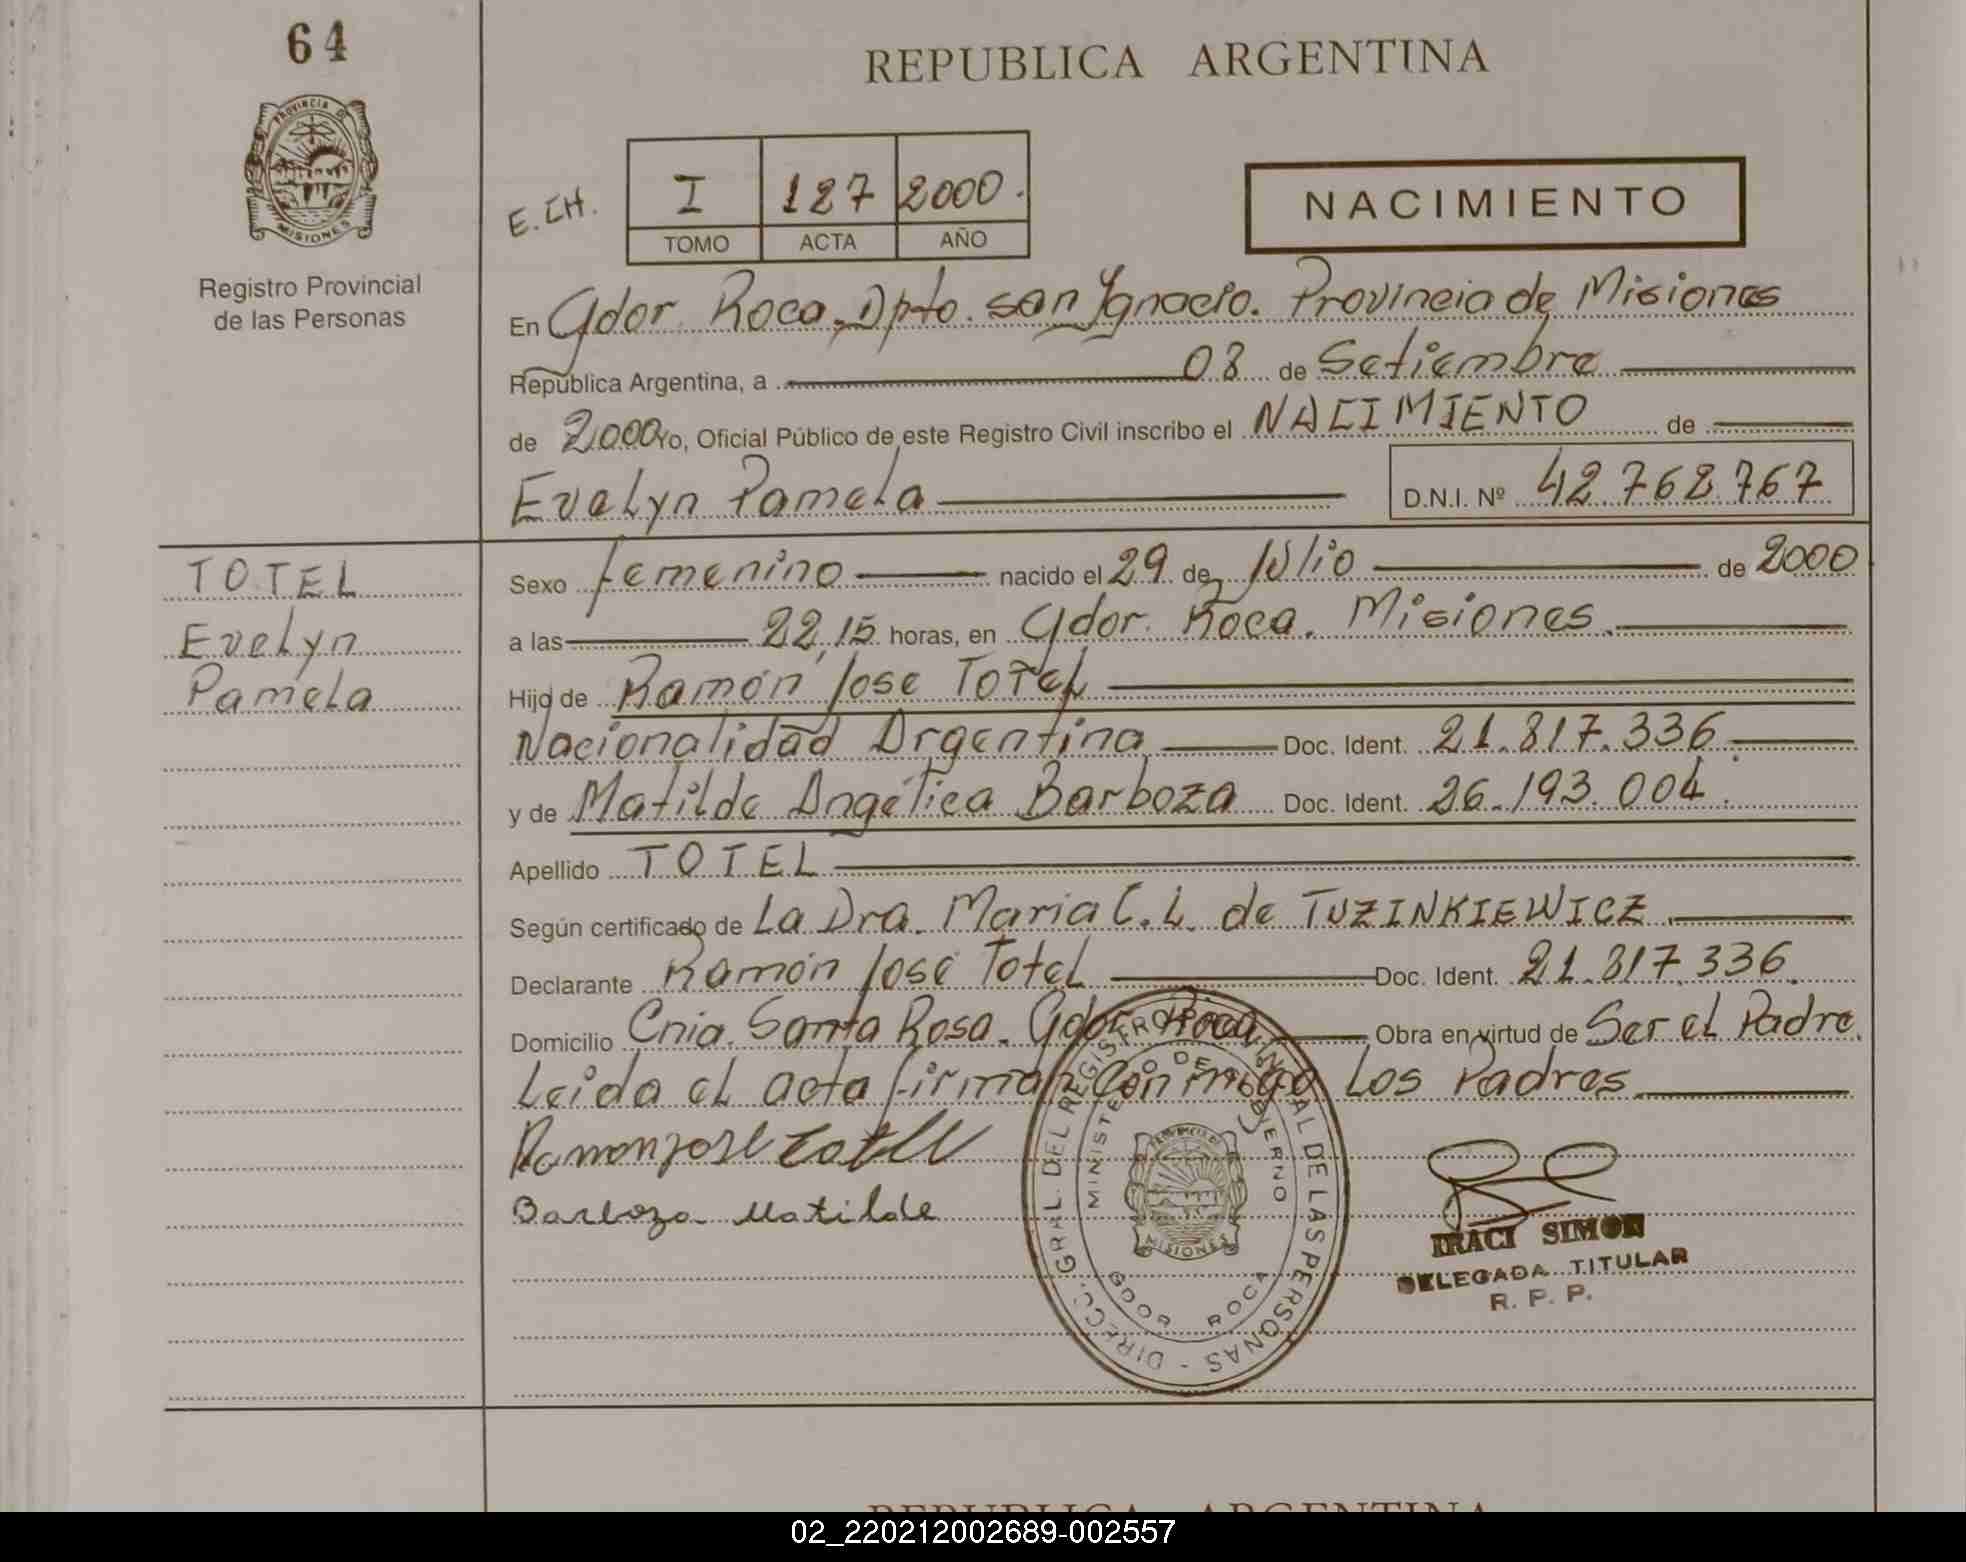 64
REPUBLICA ARGENTINA
PROVINCIA DE
MISIONES
Registro Provincial
de las Personas
E. CH.
I 127 2000.
TOMO ACTA AÑO
NACIMIENTO
En Gdor Roca, Dpto. san Ignacio. Provincia de Misiones
República Argentina, a 08 de Setiembre
de 2000 Yo, Oficial Público de este Registro Civil inscribo el NACIMIENTO de
Evelyn Pamela D.N.I. Nº 42.768.767
TOTEL
Evelyn
Pamela
Sexo femenino nacido el 29 de Julio de 2000
a las 22,15 horas, en Gdor. Roca. Misiones.
Hijo de Ramón José Totel
Nacionalidad Argentina Doc. Ident. 21.817.336.
y de Matilde Angélica Barboza Doc. Ident. 26.193.004.
Apellido TOTEL
Según certificado de La Dra. Maria C. L. de TUZINKIEWICZ
Declarante Ramón José Totel Doc. Ident. 21.817.336.
Domicilio Cnia. Santa Rosa. Gdor Roca Obra en virtud de Ser el Padre.
Leida el acta firman Conmigo Los Padres
Ramon jose Totel
Barboza Matilde
DIRECC. GRAL. DEL REGISTRO PROVINCIAL DE LAS PERSONAS -
MINISTERIO DE GOBIERNO
PROVINCIA DE
MISIONES
GDOR ROCA
IRACI SIMON
DELEGADA TITULAR
R. P. P.
REPUBLICA ARGENTINA
02_220212002689-002557